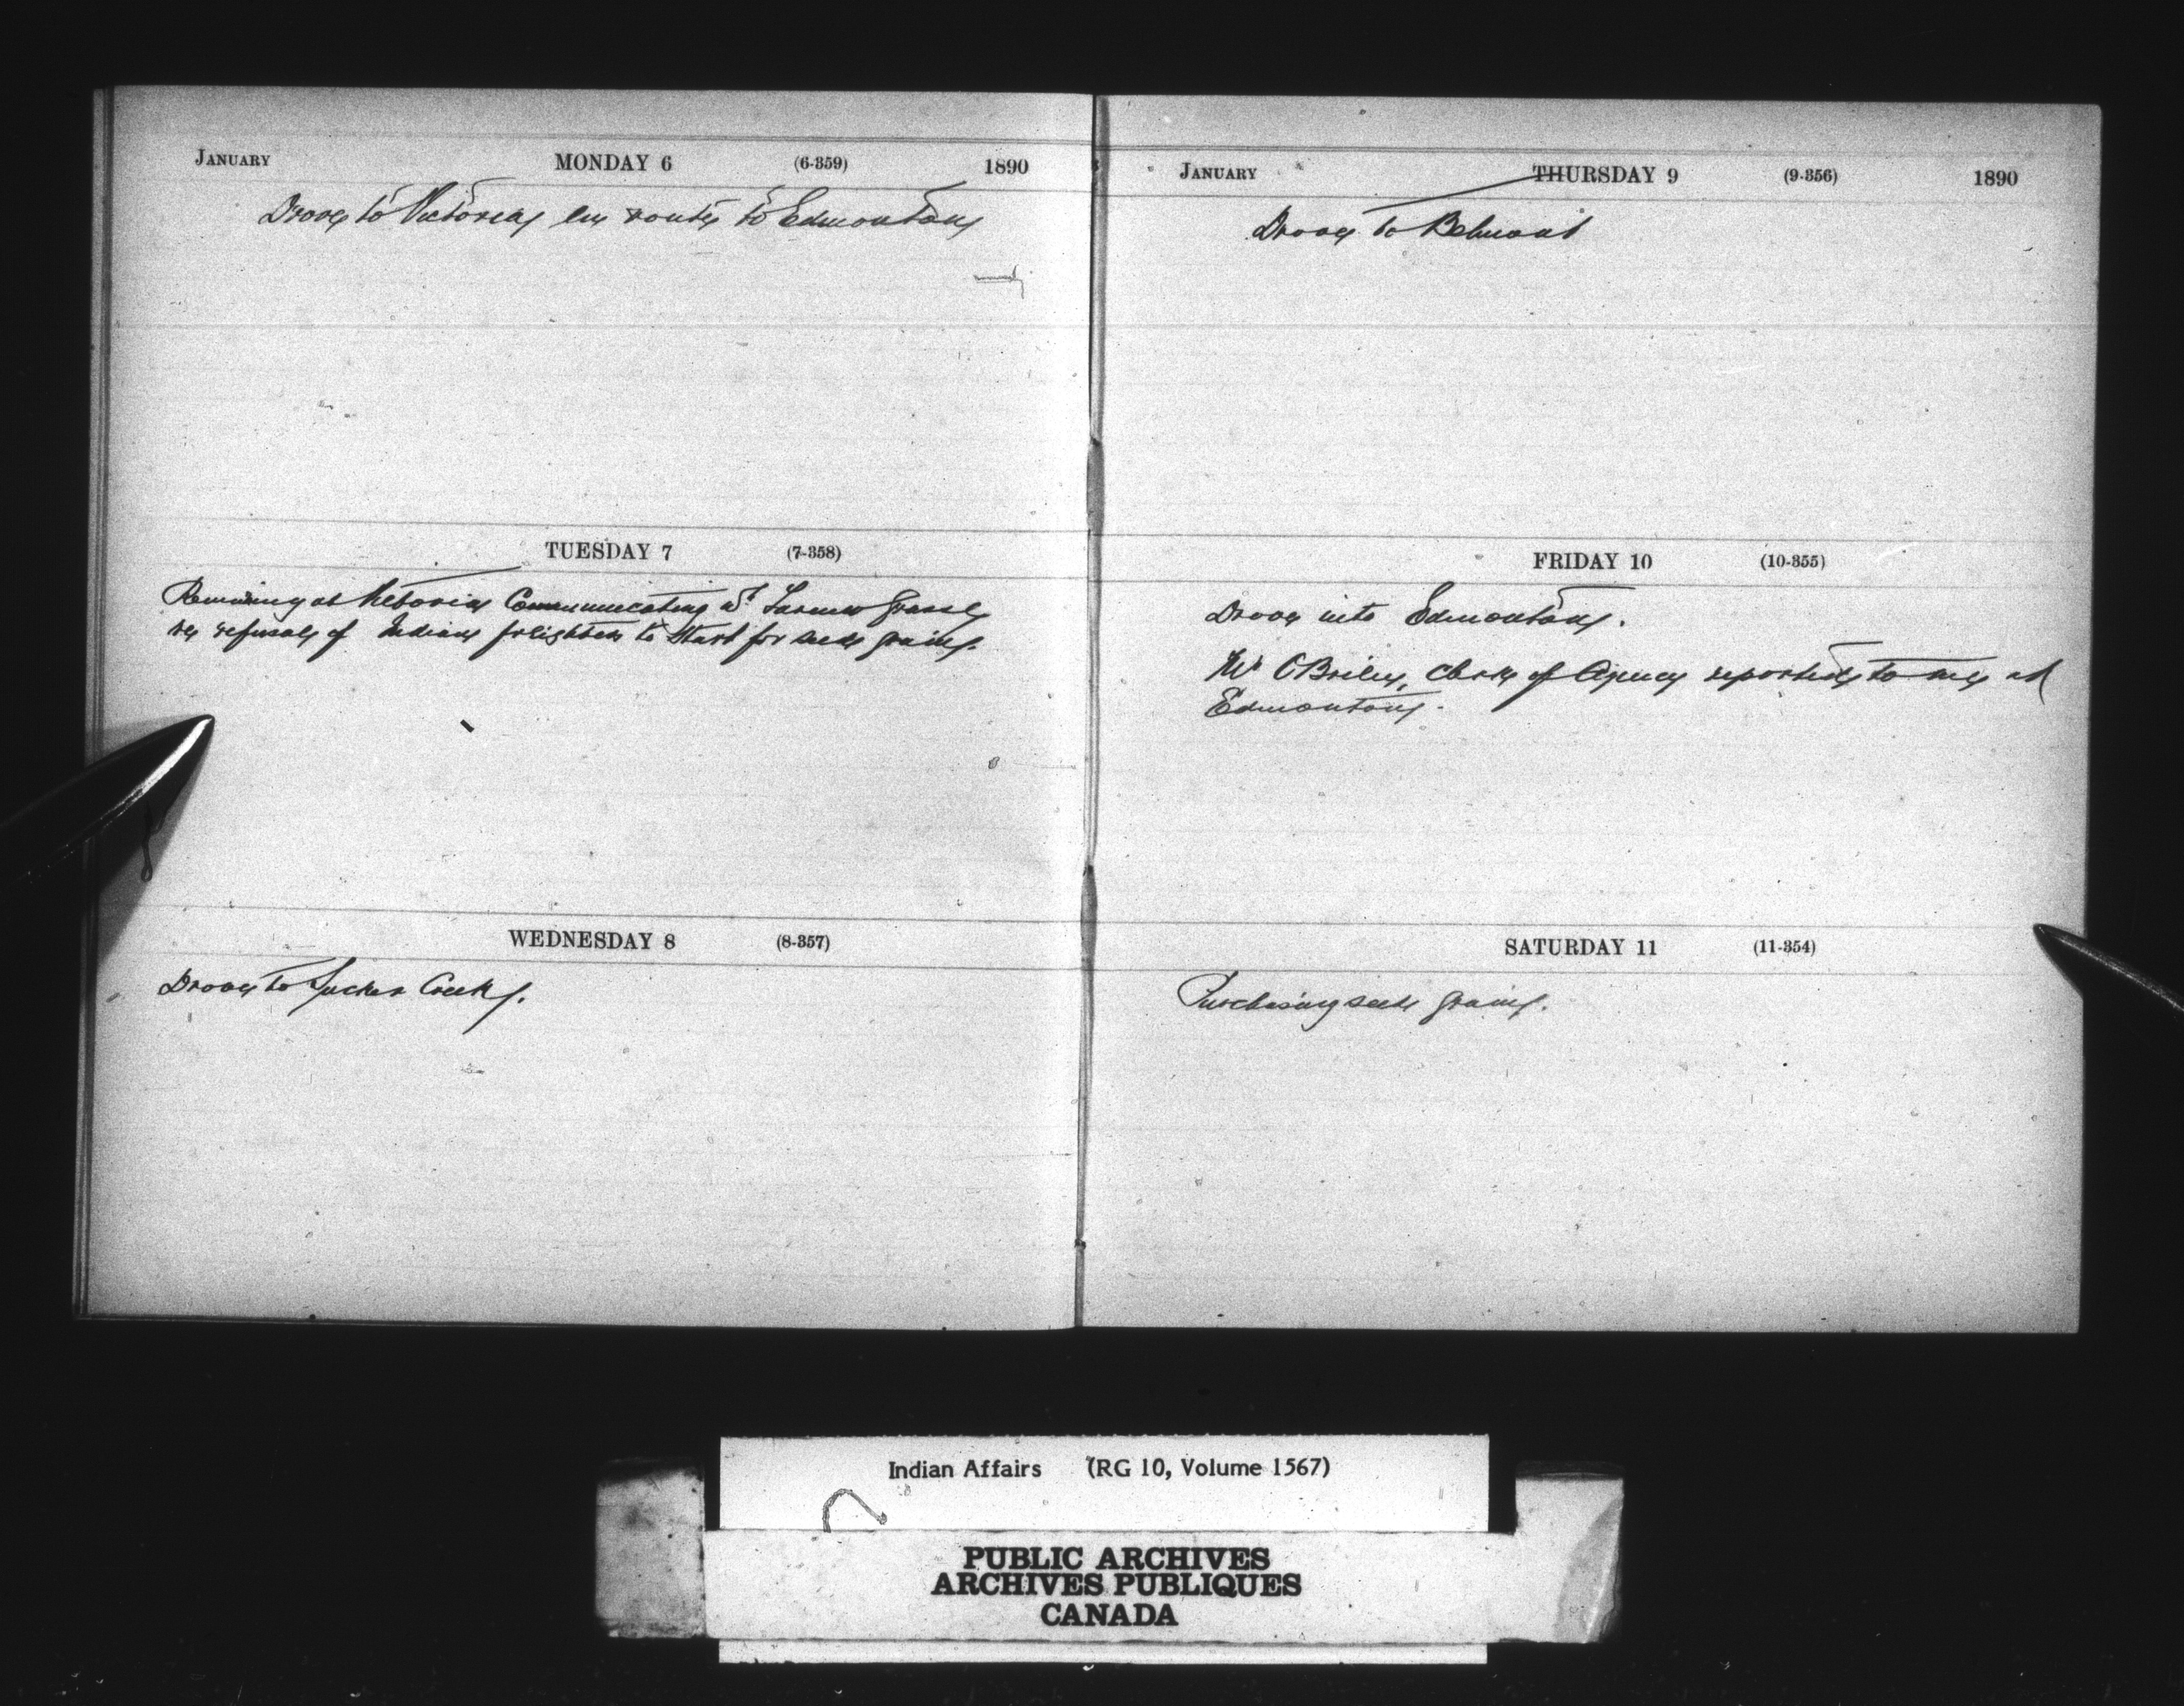 JANUARY MONDAY 6 (6-359) 1890
Drove to Victoria en route to Edmonton
TUESDAY 7 (7-358)
Remaing at Victoria Communicating wt Farmer
re refusal of Indian freighters to start for seed grain.
WEDNESDAY 8 (8-357)
Drove to Sucker Creek.
JANUARY THURSDAY 9 (9-356) 1890
Drove to Belmont
FRIDAY 10 (10-355)
Drove into Edmonton.
Mr OBrien, Clerk of Agency reported to me at
Edmonton.
SATURDAY 11 (11-354)
Purchasing seed grain.
Indian Affairs (RG 10, Volume 1567)
PUBLIC ARCHIVES
ARCHIVES PUBLIQUES
CANADA